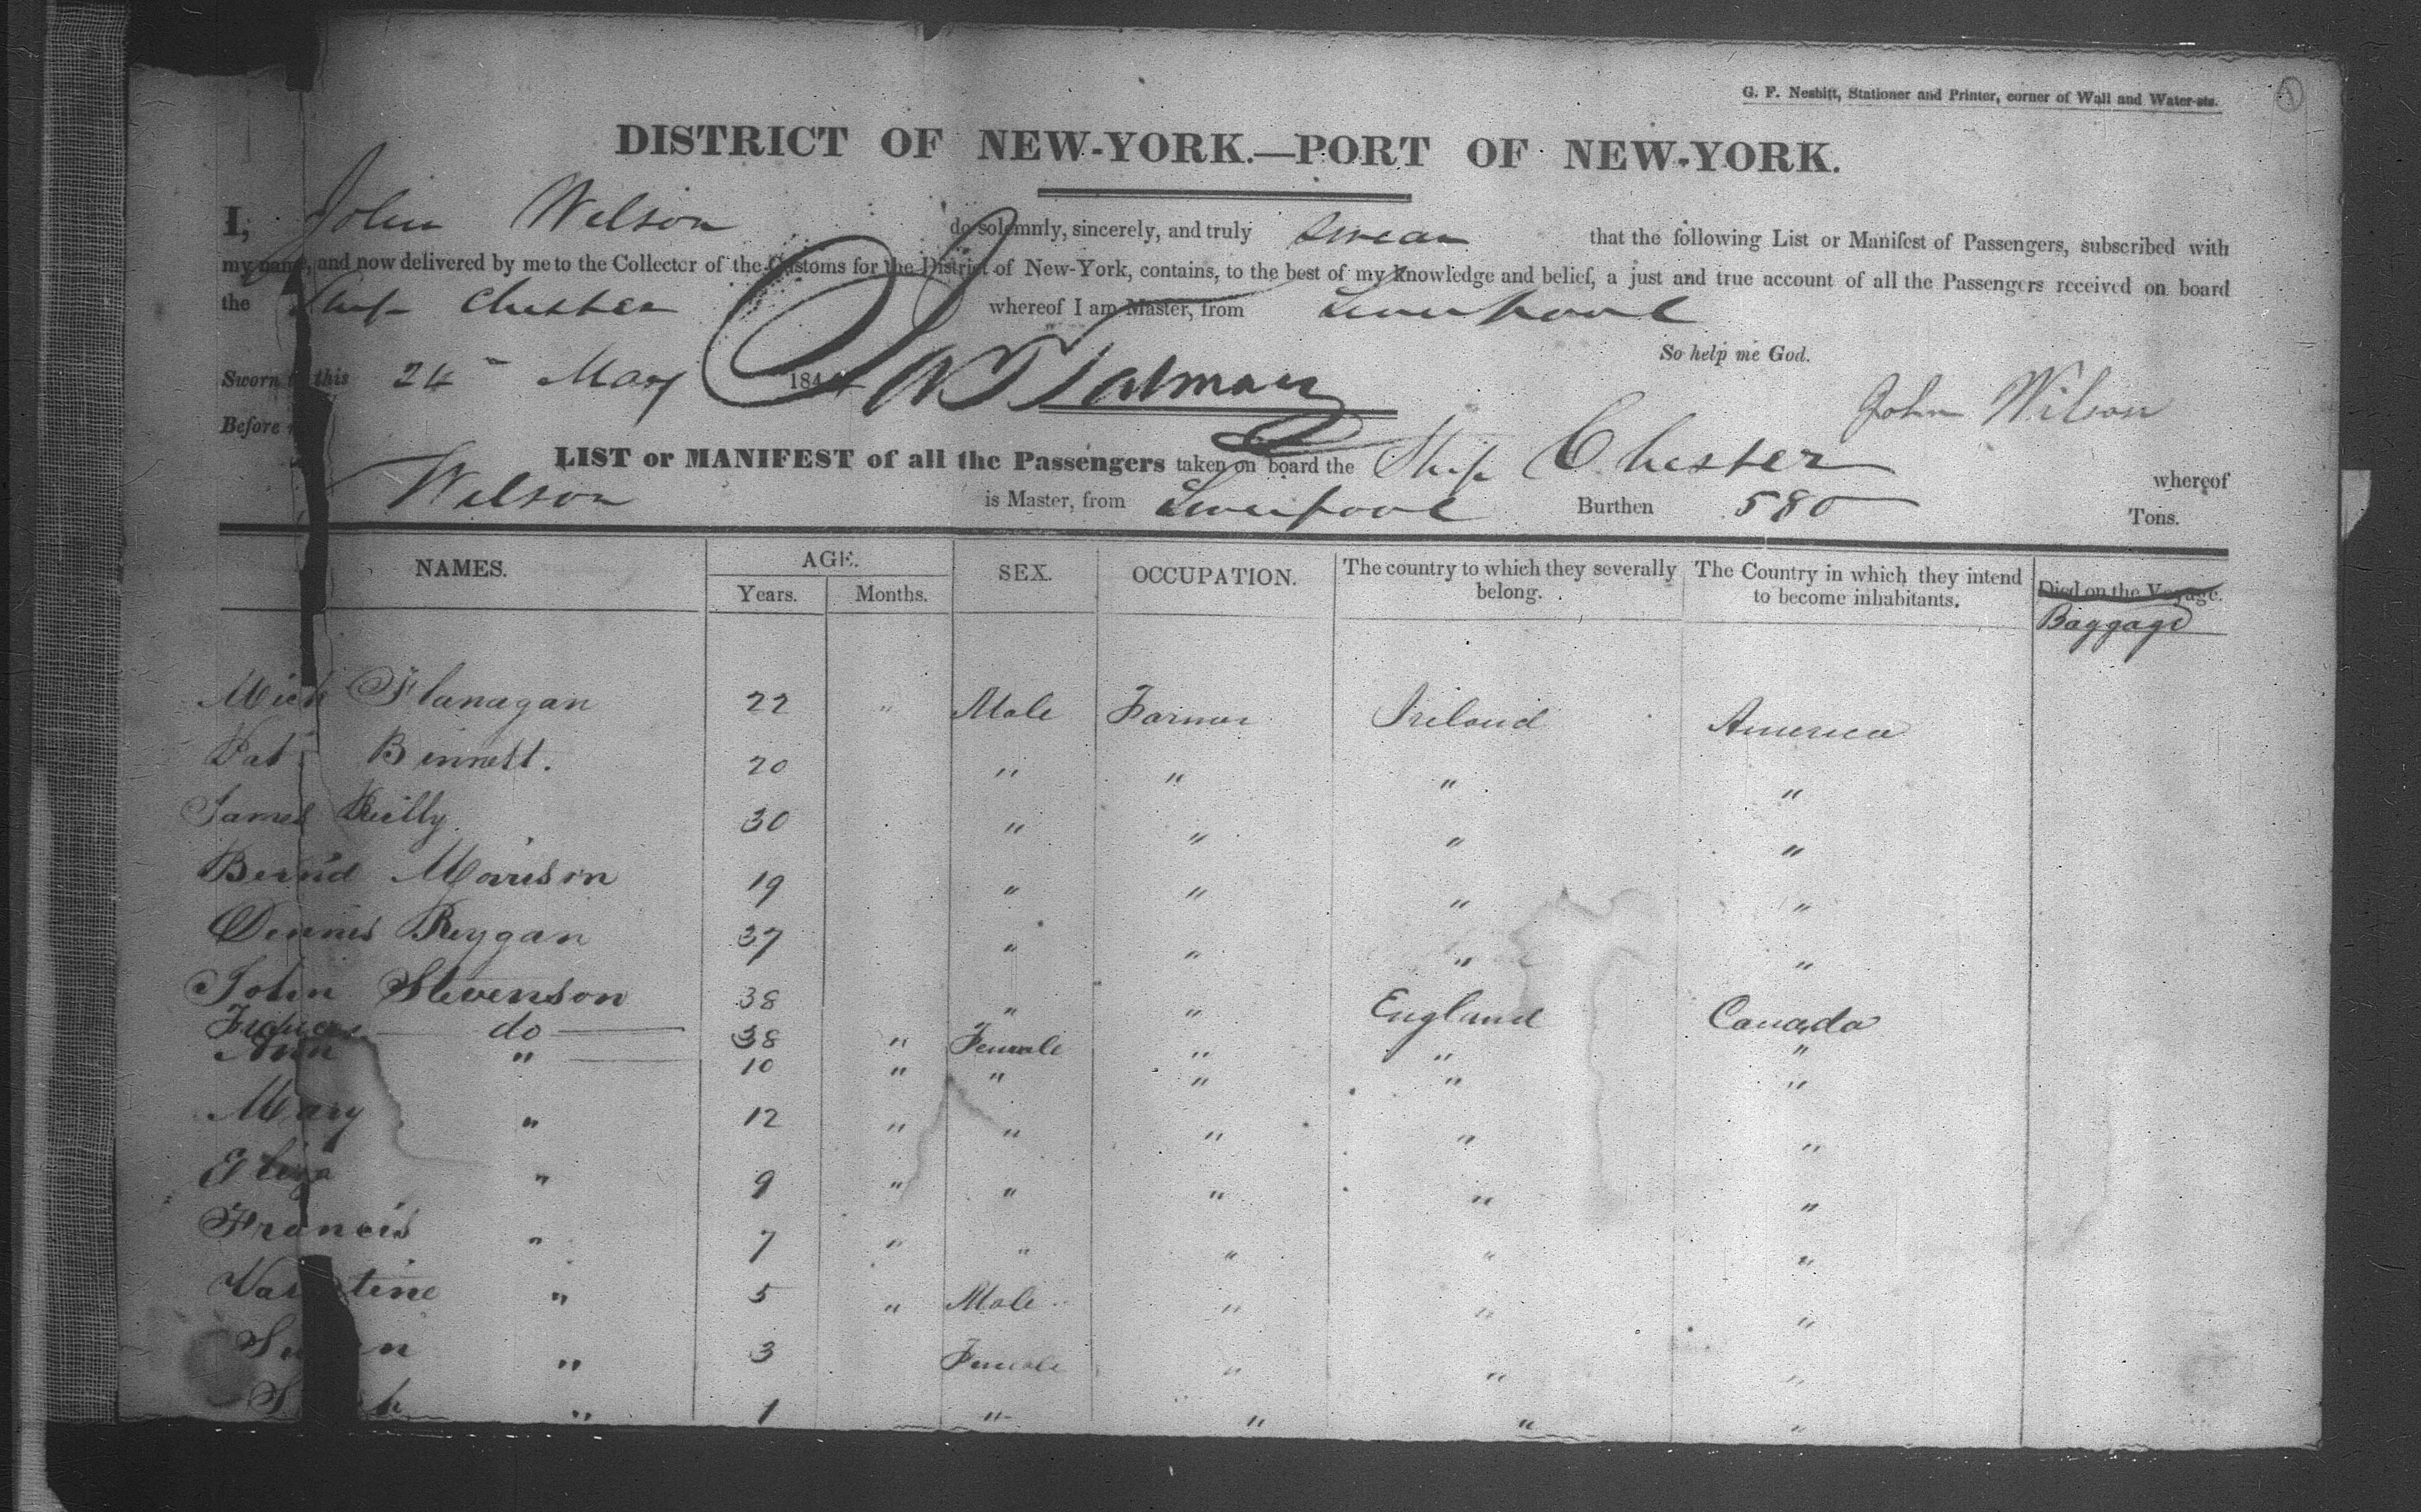 G. F. Nesbitt, Stationer and Printer, corner of Wall and Water-sts.
DISTRICT OF NEW-YORK.—PORT OF NEW-YORK.
I, John Wilson do solemnly, sincerely, and truly swear that the following List or Manifest of Passengers, subscribed with
my name, and now delivered by me to the Collector of the Customs for the District of New-York, contains, to the best of my knowledge and belief, a just and true account of all the Passengers received on board
the Ship Chester whereof I am Master, from Liverpool
So help me God.
Sworn this 24 May 184
John Wilson
Before
LIST or MANIFEST of all the Passengers taken on board the Ship Chester whereof
Wilson is Master, from Liverpool Burthen 580 Tons.
NAMES. AGE. SEX. OCCUPATION. The country to which they severally belong. The Country in which they intend to become inhabitants. Died on the Voyage.
Years. Months. Baggage
Mich Flanagan 22 " Male Farmer Ireland America
Pat Binnett. 20 " " " "
James Reilly. 30 " " " "
Bernd Morrison 19 " " " "
Dennis Reygan 37 " " " "
John Stevenson 38 " " England Canada
do 38 " Female " " "
Ann " 10 " " " " "
Mary " 12 " " " " "
Eliza " 9 " " " " "
Francis " 7 " " " " "
Va tine " 5 " Male " " "
Su n " 3 Female " " "
S h " 1 " " " "